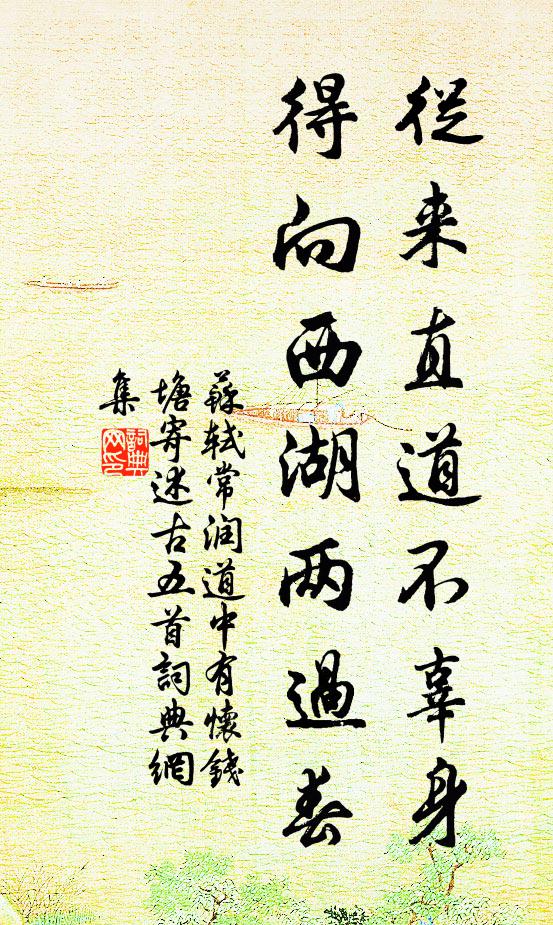 從来直道不辜身
得向西湖两過春
蘇軾常润道中有懷錢
塘寄述古五首詞典網
集
詞典
网印